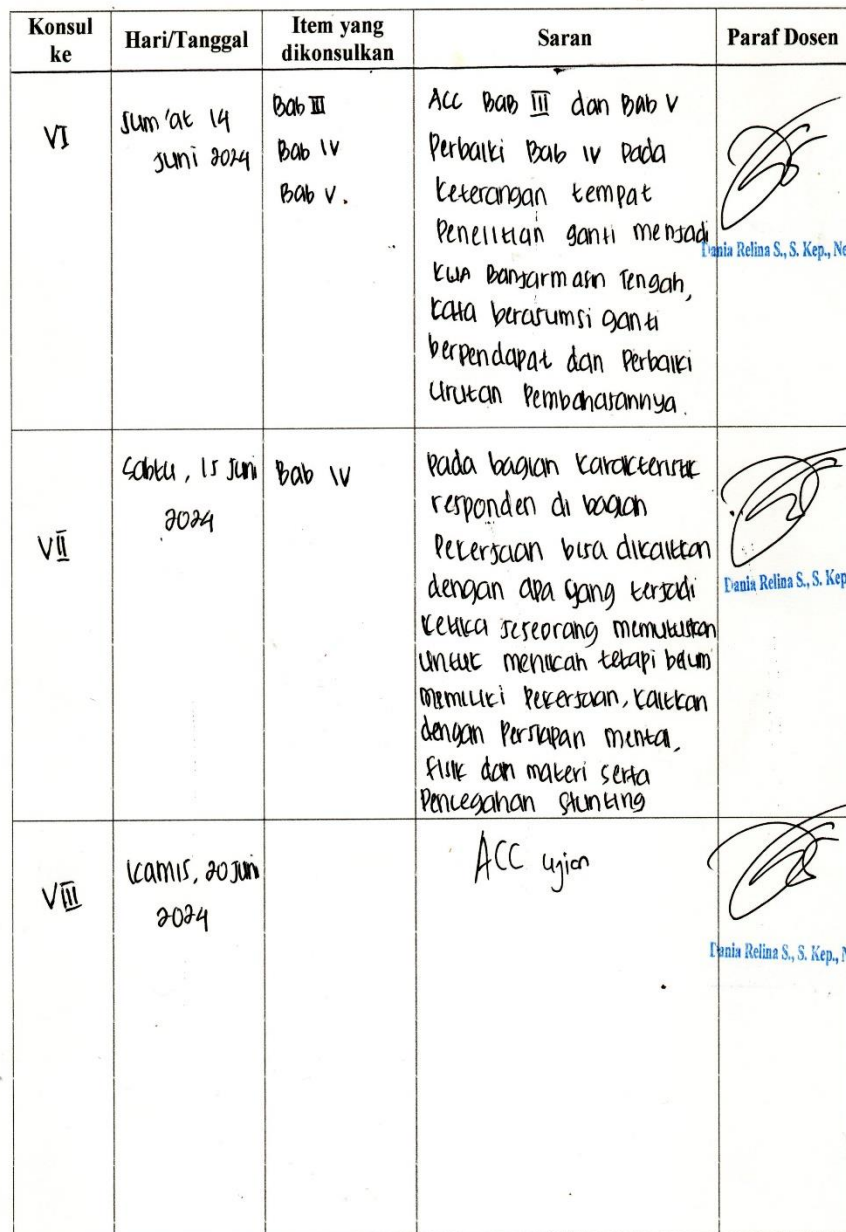 Konsul ke
Hari/Tanggal
Item yang dikonsulkan
Saran
Paraf Dosen
VI
Jum'at 14
Juni 2024
Bab III
Bab IV
Bab V.
ACC BAB III dan BAB V
Perbaiki Bab IV Pada
keterangan tempat
Penelitian ganti menjadi
KUA Banjarmasin Tengah,
kata berasumsi ganti
berpendapat dan Perbaiki
Urutan Pembahasannya.
Dania Relina S., S. Kep., Ne
VII
Sabtu, 15 Juni
2024
Bab IV
Pada bagian karakteristik
responden di bagian
Pekerjaan bisa dikaitkan
dengan apa yang terjadi
ketika seseorang memutuskan
untuk menikah tetapi belum
memiliki Pekerjaan, kaitkan
dengan Persiapan mental,
fisik dan materi serta
Pencegahan Stunting
Dania Relina S., S. Kep
VIII
Kamis, 20 Juni
2024
ACC Ujian
Dania Relina S., S. Kep., N